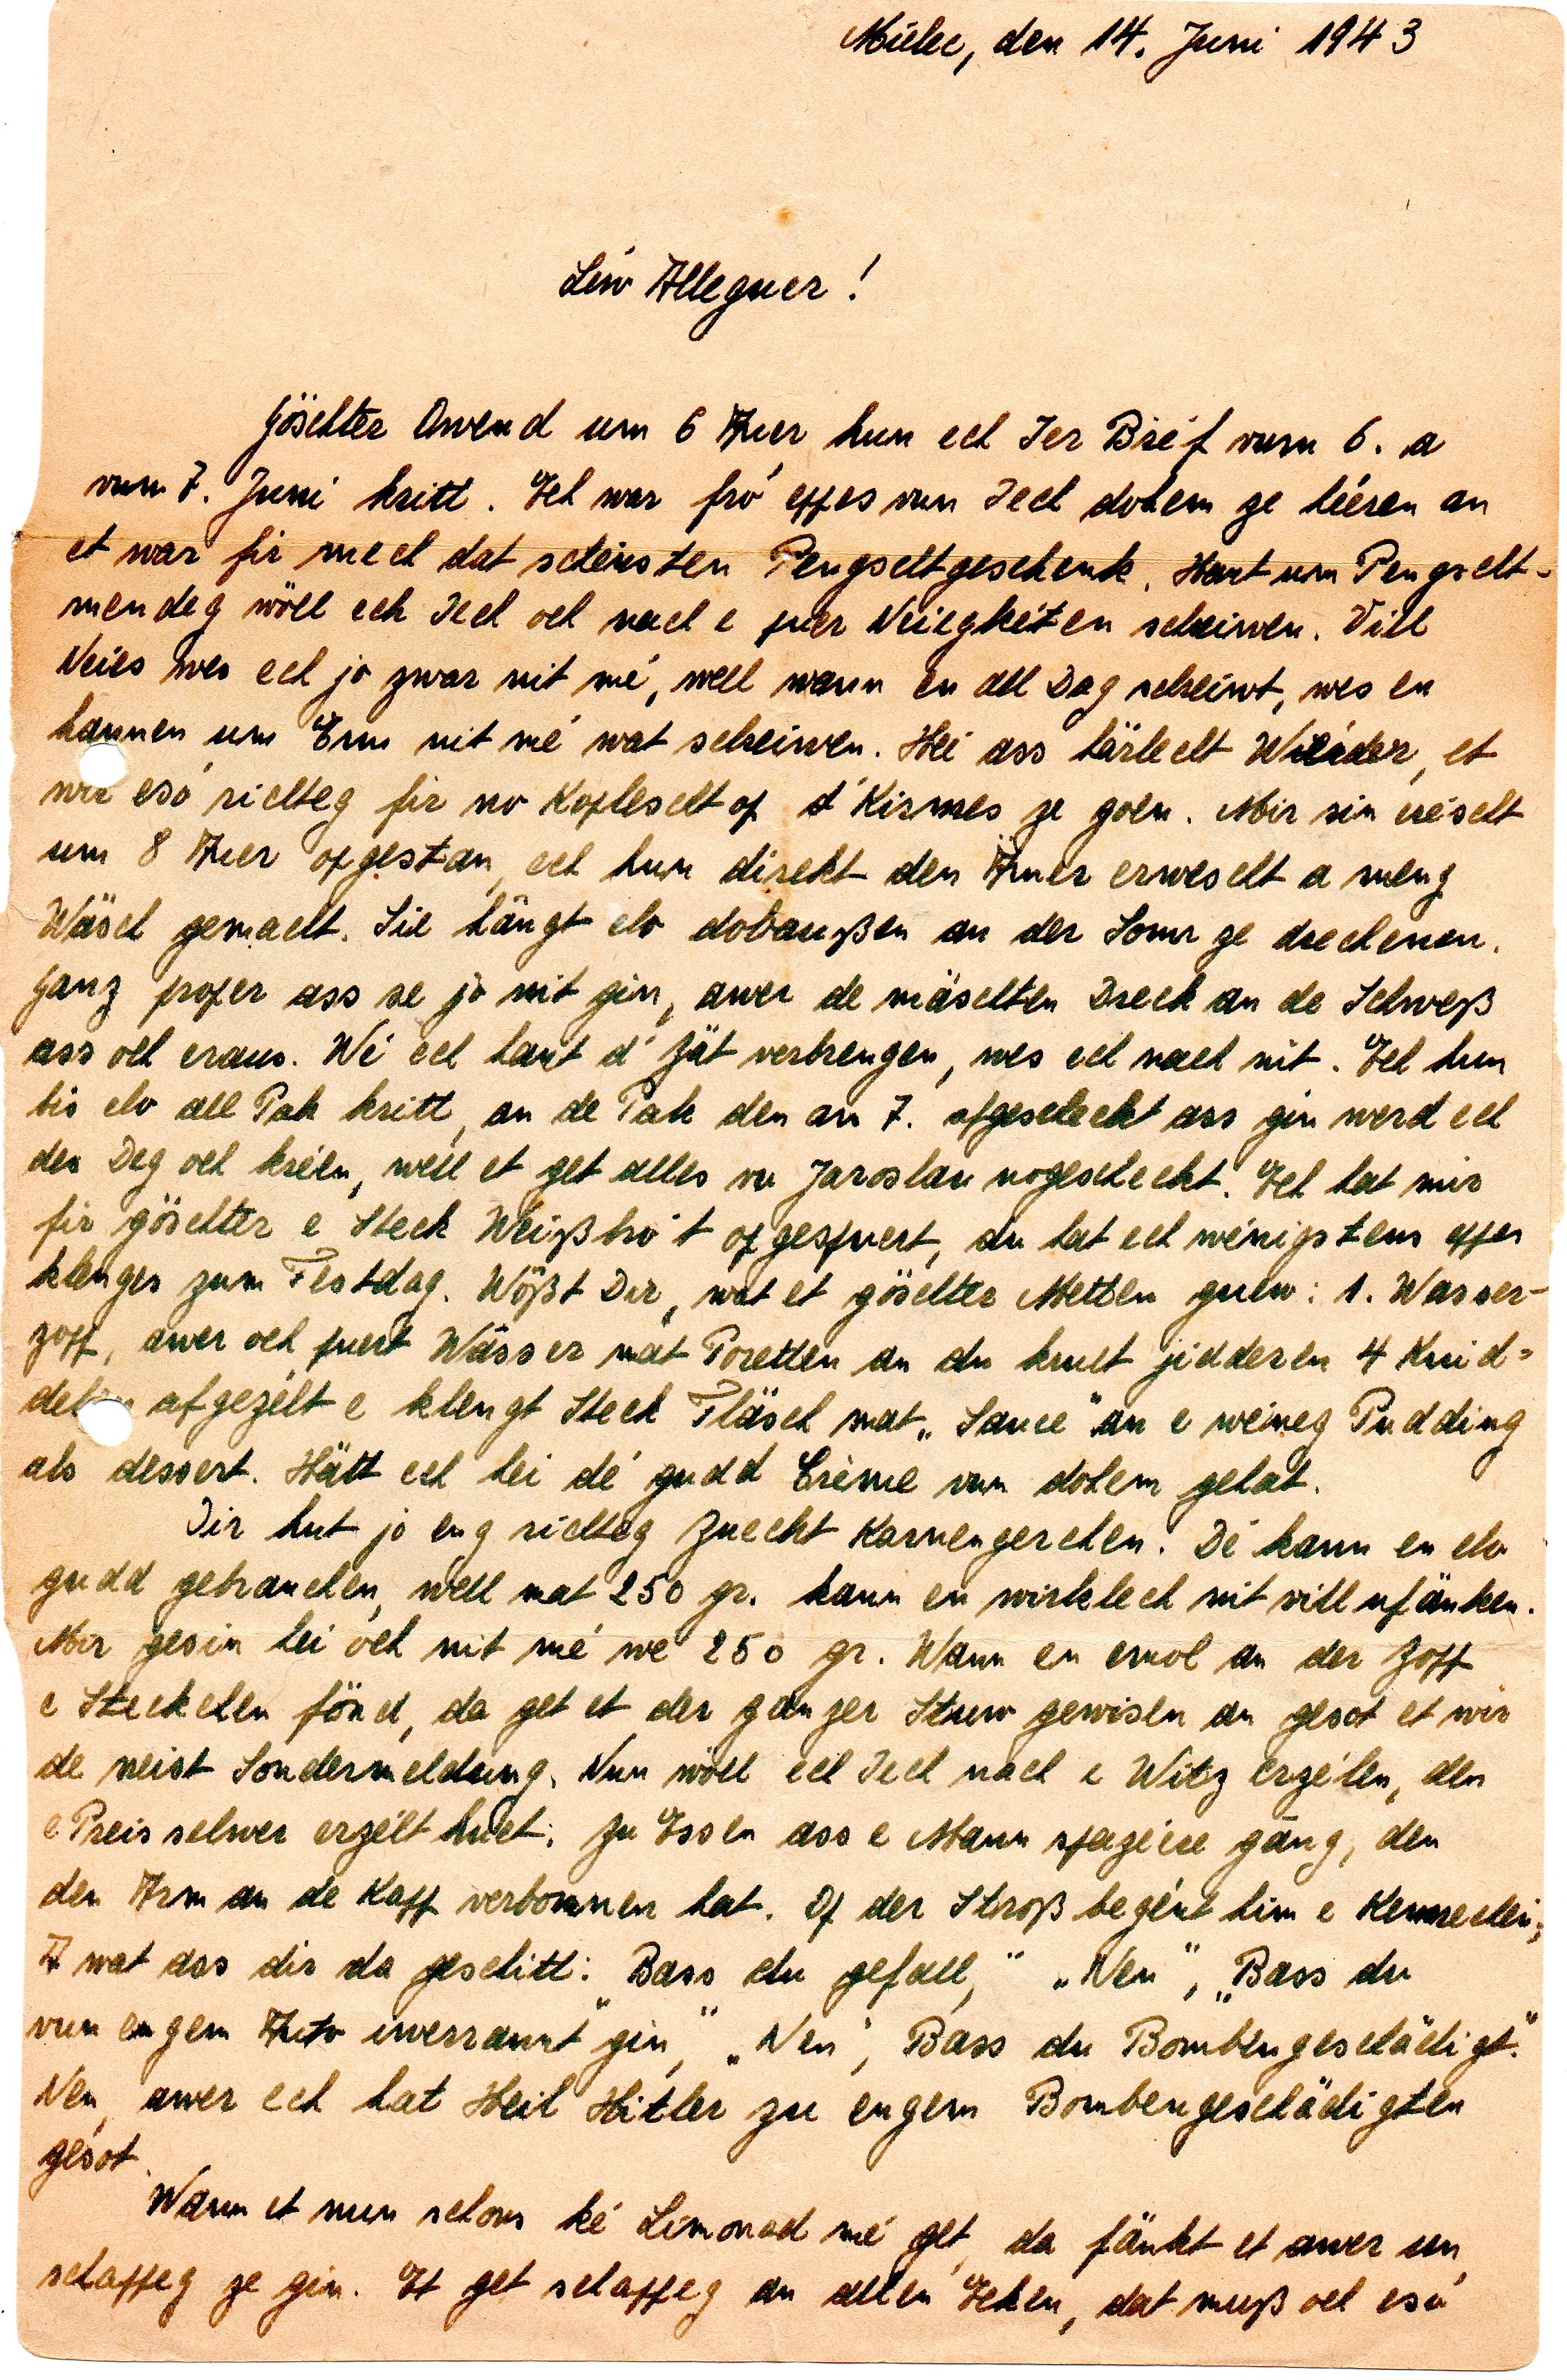 Mielec, den 14. Juni 1943
Léiw Alleguer!
Göschter Owend um 6 Auer hun ech Ier Bréf vum 6. a
vum 7. Juni kritt. Ech war fró eppes vun Iech dohem ze héieren an
et war fir mech dat schéinsten Pengschtgeschenk. Haut um Pengscht-
mendeg wöll ech Iech och nach e puer Neiegkéten schreiwen. Vill
Neies wes ech jo zwar nit mé, well wann en all Dag schreiwt, wes en
hannen um Enn nit mé wat schreiwen. Hei ass härlecht Wieder, et
wir esó richteg fir no Koplescht op d'Kirmes ze goen. Mir sin eréischt
um 8 Auer opgestan, ech hun direkt den Amer erwescht a meng
Wäsch gemacht. Sie hängt elo dobaußen an der Sonn ze drechenen.
Ganz proper ass se jo nit gin, awer de mäschten Dreck an de Schweß
ass och eraus. Wé ech haut d'Zät verbrengen, wes ech nach nit. Ech hun
bis elo all Pak kritt, an de Pak den an 7. ofgescheckt ass gin werd ech
der Deg och kréien, well et get alles vu Jaroslau nogescheckt. Ech hat mir
fir göschter e Steck Weißbró't opgespuert, du hat ech wéinigstens eppes
klenges zum Festdag. Wößt Dir, wat et göschter Metten guew: 1. Wasser-
zopp, awer och puert Wässer mat Poretten an du krut jidderen 4 Knid-
delen ofgezélt e klengt Steck Fläsch mat „Sauce" an e wéineg Pudding
als dessert. Hätt ech hei dé gudd Crème vun dohem gehat.
Dir hut jo eng richteg Zuecht Karnengercher. Dé kann en elo
gudd gebrauchen, well mat 250 gr. kann en wirklech nit vill ufänken.
Mir gesin hei och nit mé wé 250 gr. Wann en emol an der Zopp
e Steckelen fönd, da get et der ganzer Stuw gewisen an gesot et wir
de neist Sondermeldung. Nun wöll ech Iech nach e Witz erzélen, den
e Preis selwer erzélt huet: Zu Essen ass e Mann spazéire gäng, den
den Arm an de Kapp verbonnen hat. Op der Stroß begént him e Kennechen;
A wat ass dir da geschitt: „Bass du gefall," „Nen", „Bass du
vun engem Auto iwerrannt gin," „Nen", Bass du Bombengeschädigt."
Nen, awer ech hat Heil Hitler zu engem Bombengeschädigten
gesot.
Wann et nun schons ké Limonad mé get, da fänkt et awer un
schappeg ze gin. Et get schappeg an allen Ecken, dat muß och esó